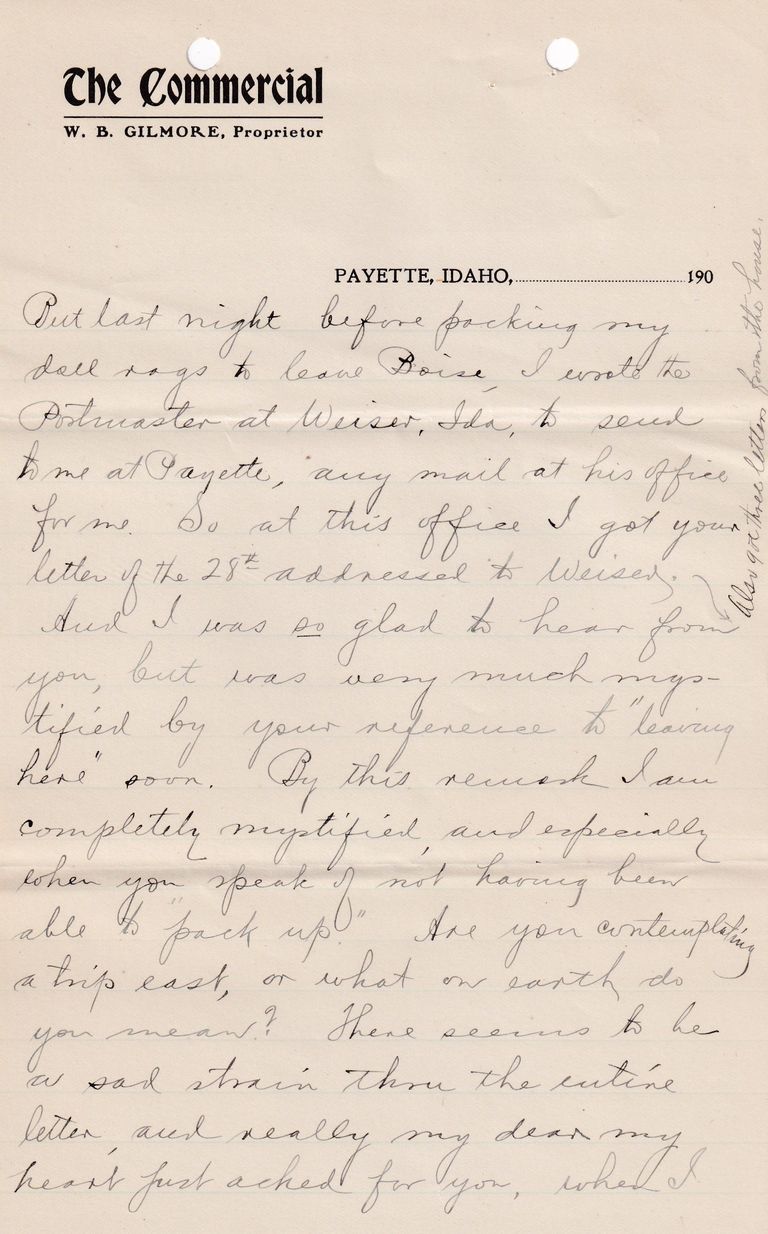 The Commercial
W. B. GILMORE, Proprietor
PAYETTE, IDAHO,..............................190
But last night before packing my
doll rags to leave Boise, I wrote the
Postmaster at Weiser, Ida, to send
to me at Payette, any mail at his office
for me. So at this office I got your
letter of the 28th addressed to Weiser.
And I was so glad to hear from
you, but was very much mys-
tified by your reference to "leaving
here" soon. By this remark I am
completely mystified, and especially
when you speak of not having been
able to "pack up." Are you contemplating
a trip east, or what on earth do
you mean? There seems to be
a sad strain thru the entire
letter, and really my dear my
heart just ached for you, when I
Also got three letters from the house.